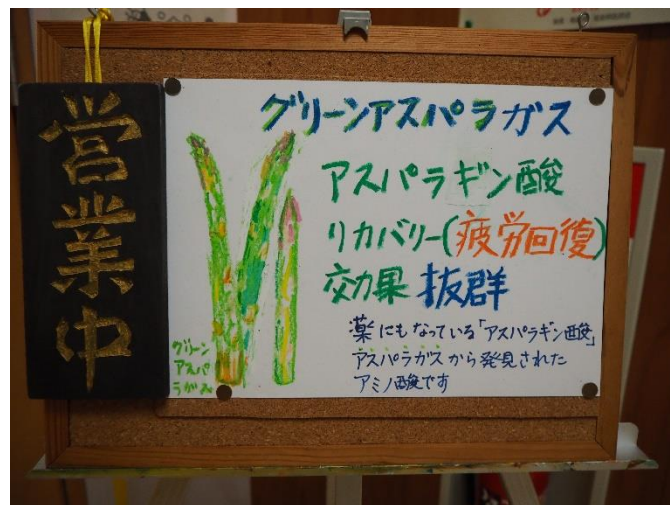 営業中
グリーンアスパラガス
アスパラギン酸
リカバリー(疲労回復)
効果 抜群
薬にもなっている「アスパラギン酸」
アスパラガスから発見された
アミノ酸です
グリーン
アスパ
らがス